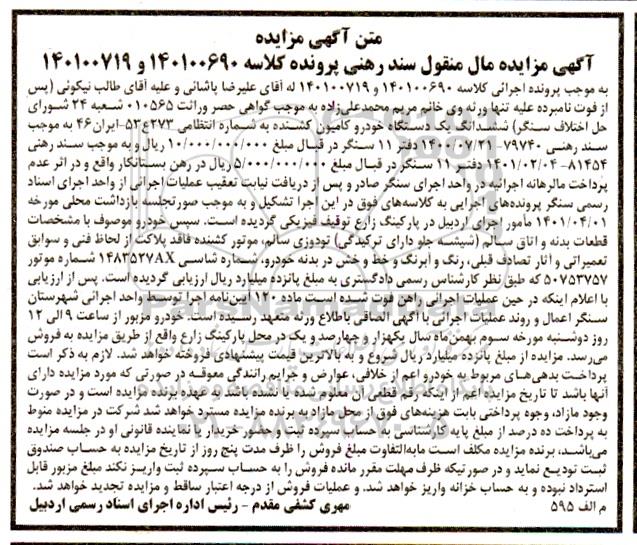 متن آگهی مزایده
آگهی مزایده مال منقول سند رهنی پرونده کلاسه ۱۴۰۱۰۰۶۹۰ و ۱۴۰۱۰۰۷۱۹
به موجب پرونده اجرائی کلاسه ۱۴۰۱۰۰۶۹۰ و ۱۴۰۱۰۰۷۱۹ له آقای علیرضا پاشائی و علیه آقای طالب نیکوئی (پس
از فوت نامبرده علیه تنها ورثه وی خانم مریم محمدعلی‌زاده به موجب گواهی حصر وراثت ۰۱۰۵۶۵ شعبه ۲۴ شورای
حل اختلاف سنگر) ششدانگ یک دستگاه خودرو کامیون کشنده به شماره انتظامی ۲۷۳ع۵۳-ایران۴۶ به موجب
سند رهنی ۷۹۷۴۰- ۱۴۰۰/۰۷/۲۱ دفتر ۱۱ سنگر در قبال مبلغ ۱۰/۰۰۰/۰۰۰/۰۰۰ ریال و به موجب سند رهنی
۸۱۴۵۴- ۱۴۰۱/۰۲/۰۴ دفتر ۱۱ سنگر در قبال مبلغ ۵/۰۰۰/۰۰۰/۰۰۰ ریال در رهن بستانکار واقع و در اثر عدم
پرداخت مالرهانه اجرائیه در واحد اجرای سنگر صادر و پس از دریافت نیابت تعقیب عملیات اجرائی از واحد اجرای اسناد
رسمی سنگر پرونده‌های اجرایی به کلاسه‌های فوق در این اجرا تشکیل و به موجب صورتجلسه بازداشت محلی مورخه
۱۴۰۱/۰۴/۰۱ مأمور اجرای اردبیل در پارکینگ زارع توقیف فیزیکی گردیده است. سپس خودرو موصوف با مشخصات
قطعات بدنه و اتاق سالم (شیشه جلو دارای ترکیدگی) تودوزی سالم، موتور کشنده فاقد پلاکت از لحاظ فنی و سوابق
تعمیراتی و آثار تصادف قبلی، رنگ و آبرنگ و خط و خش در بدنه خودرو، شماره شاسی ۱۴۸۳۵۲۷AX شماره موتور
۵۰۷۵۳۷۵۷ که طبق نظر کارشناس رسمی دادگستری به مبلغ پانزده میلیارد ریال ارزیابی گردیده است. پس از ارزیابی
با اعلام اینکه در حین عملیات اجرائی راهن فوت شده است ماده ۱۲۰ آیین‌نامه اجرا توسط واحد اجرائی شهرستان
سنگر اعمال و روند عملیات اجرائی با آگهی الصاقی باطلاع ورثه متعهد رسیده است. خودرو مزبور از ساعت ۹ الی ۱۲
روز دوشنبه مورخه سوم بهمن‌ماه سال یکهزار و چهارصد و یک در محل پارکینگ زارع واقع از طریق مزایده به فروش
می‌رسد. مزایده از مبلغ پانزده میلیارد ریال شروع و به بالاترین قیمت پیشنهادی فروخته خواهد شد. لازم به ذکر است
پرداخت بدهی‌های مربوط به خودرو اعم از خلافی، عوارض و جرایم رانندگی معوقه در صورتی که مورد مزایده دارای
آنها باشد تا تاریخ مزایده اعم از اینکه رقم قطعی آن معلوم شده یا نشده باشد به عهده برنده مزایده است و در صورت
وجود مازاد، وجوه پرداختی بابت هزینه‌های فوق از محل مازاد به برنده مزایده مسترد خواهد شد شرکت در مزایده منوط
به پرداخت ده درصد از مبلغ پایه کارشناسی به حساب سپرده ثبت و حضور خریدار یا نماینده قانونی او در جلسه مزایده
می‌باشد. برنده مزایده مکلف است مابه‌التفاوت مبلغ فروش را ظرف مدت پنج روز از تاریخ مزایده به حساب صندوق
ثبت تودیع نماید و در صورتیکه ظرف مهلت مقرر مانده فروش را به حساب سپرده ثبت واریز نکند مبلغ مزبور قابل
استرداد نبوده و به حساب خزانه واریز خواهد شد. و عملیات فروش از درجه اعتبار ساقط و مزایده تجدید خواهد شد.
م الف ۵۹۵ مهری کشفی مقدم - رئیس اداره اجرای اسناد رسمی اردبیل